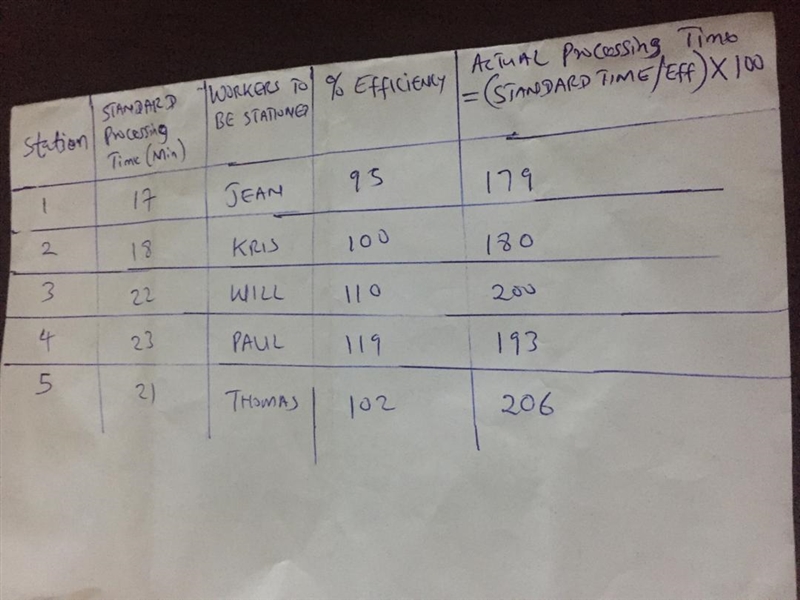 Station | STANDARD Processing Time (Min) | WORKERS TO BE STATIONED | % EFFICIENCY | ACTUAL Processing Time = (STANDARD TIME/Eff) X 100
1 | 17 | JEAN | 95 | 179
2 | 18 | KRIS | 100 | 180
3 | 22 | WILL | 110 | 200
4 | 23 | PAUL | 119 | 193
5 | 21 | THOMAS | 102 | 206